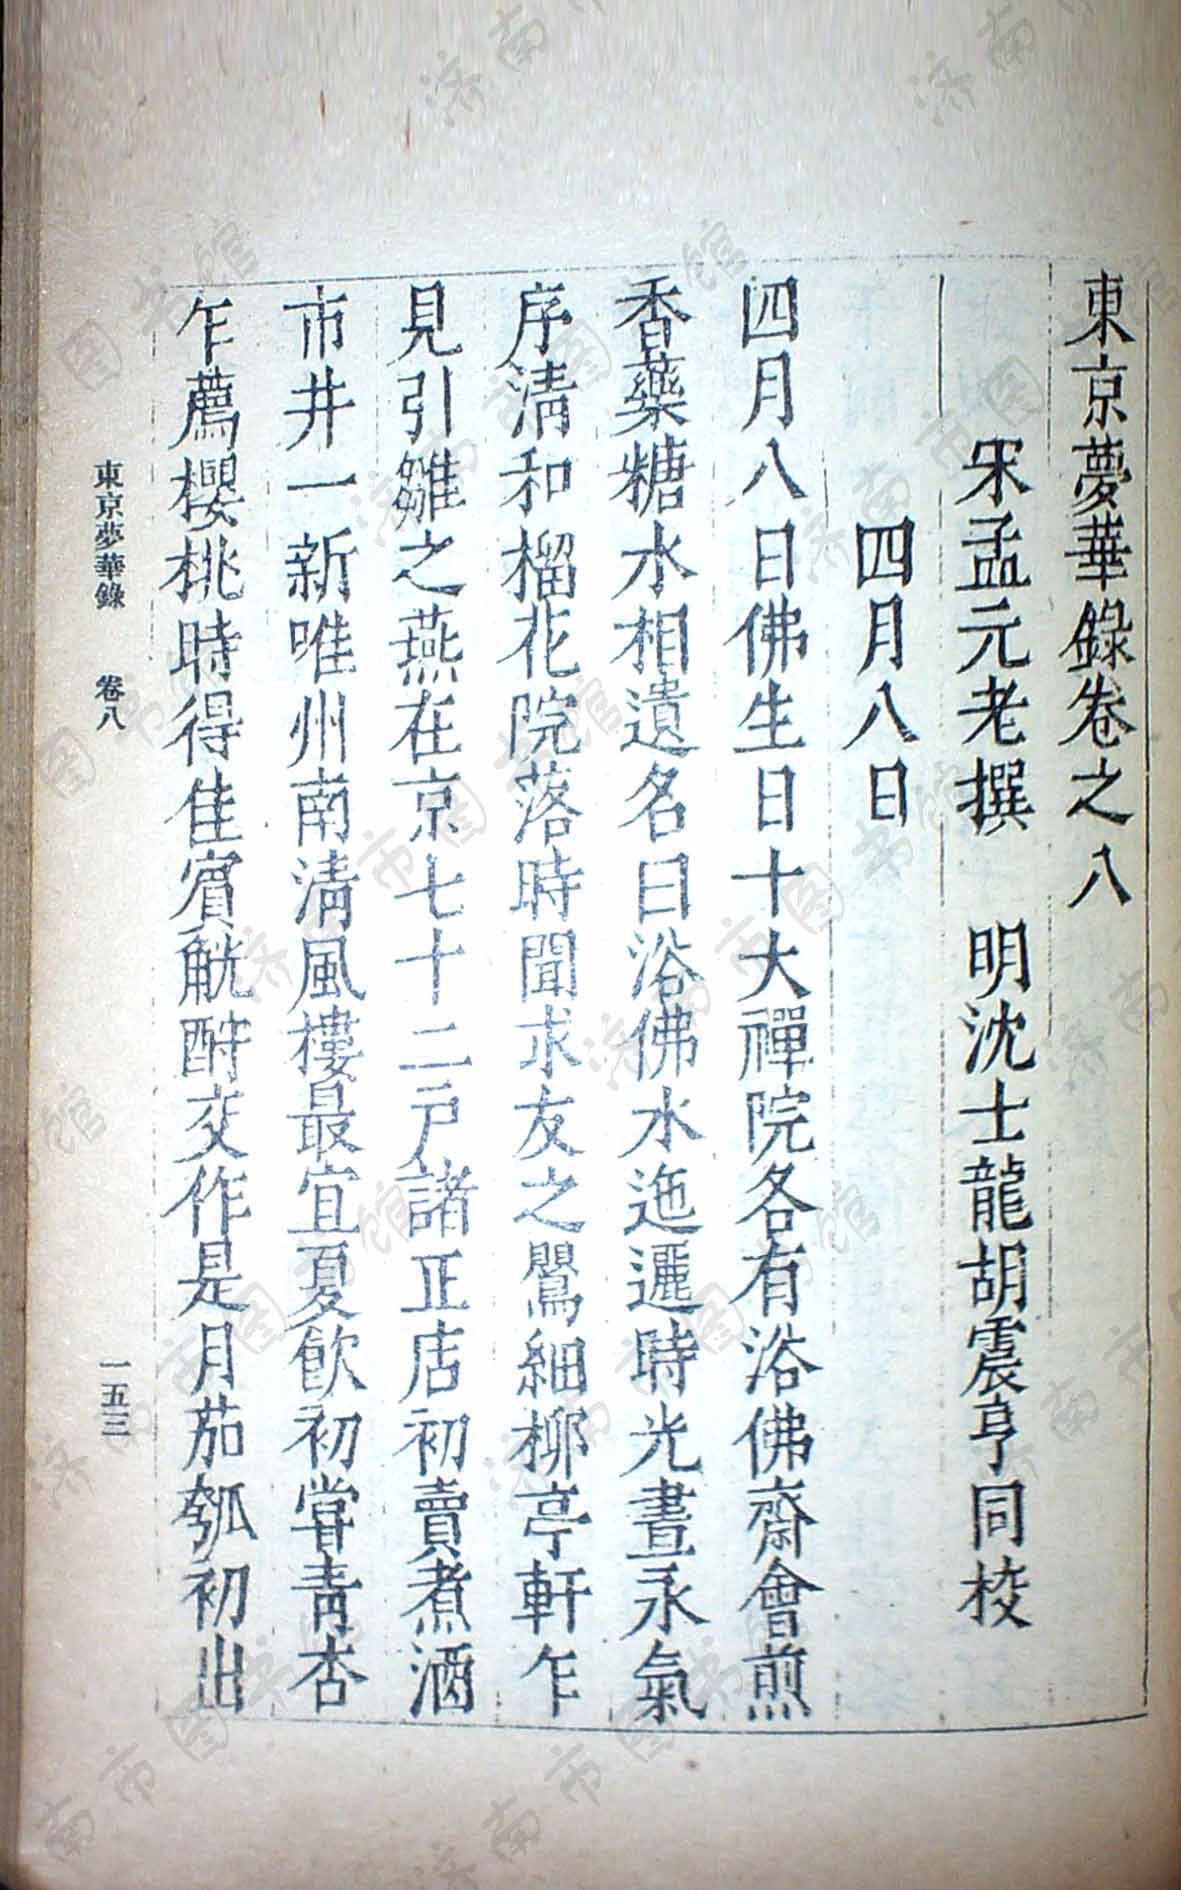 東京夢華錄卷之八
宋孟元老撰　明沈士龍胡震亨同校
四月八日
四月八日佛生日十大禪院各有浴佛齋會煎
香藥糖水相遺名曰浴佛水迤邐時光晝永氣
序淸和榴花院落時聞求友之鸎細柳亭軒乍
見引雛之燕在京七十二戸諸正店初賣煮酒
市井一新唯州南淸風樓最宜夏飮初甞靑杏
乍薦櫻桃時得佳賓觥酧交作是月茄瓠初出
東京夢華錄　卷八　一五三
济南市图书馆